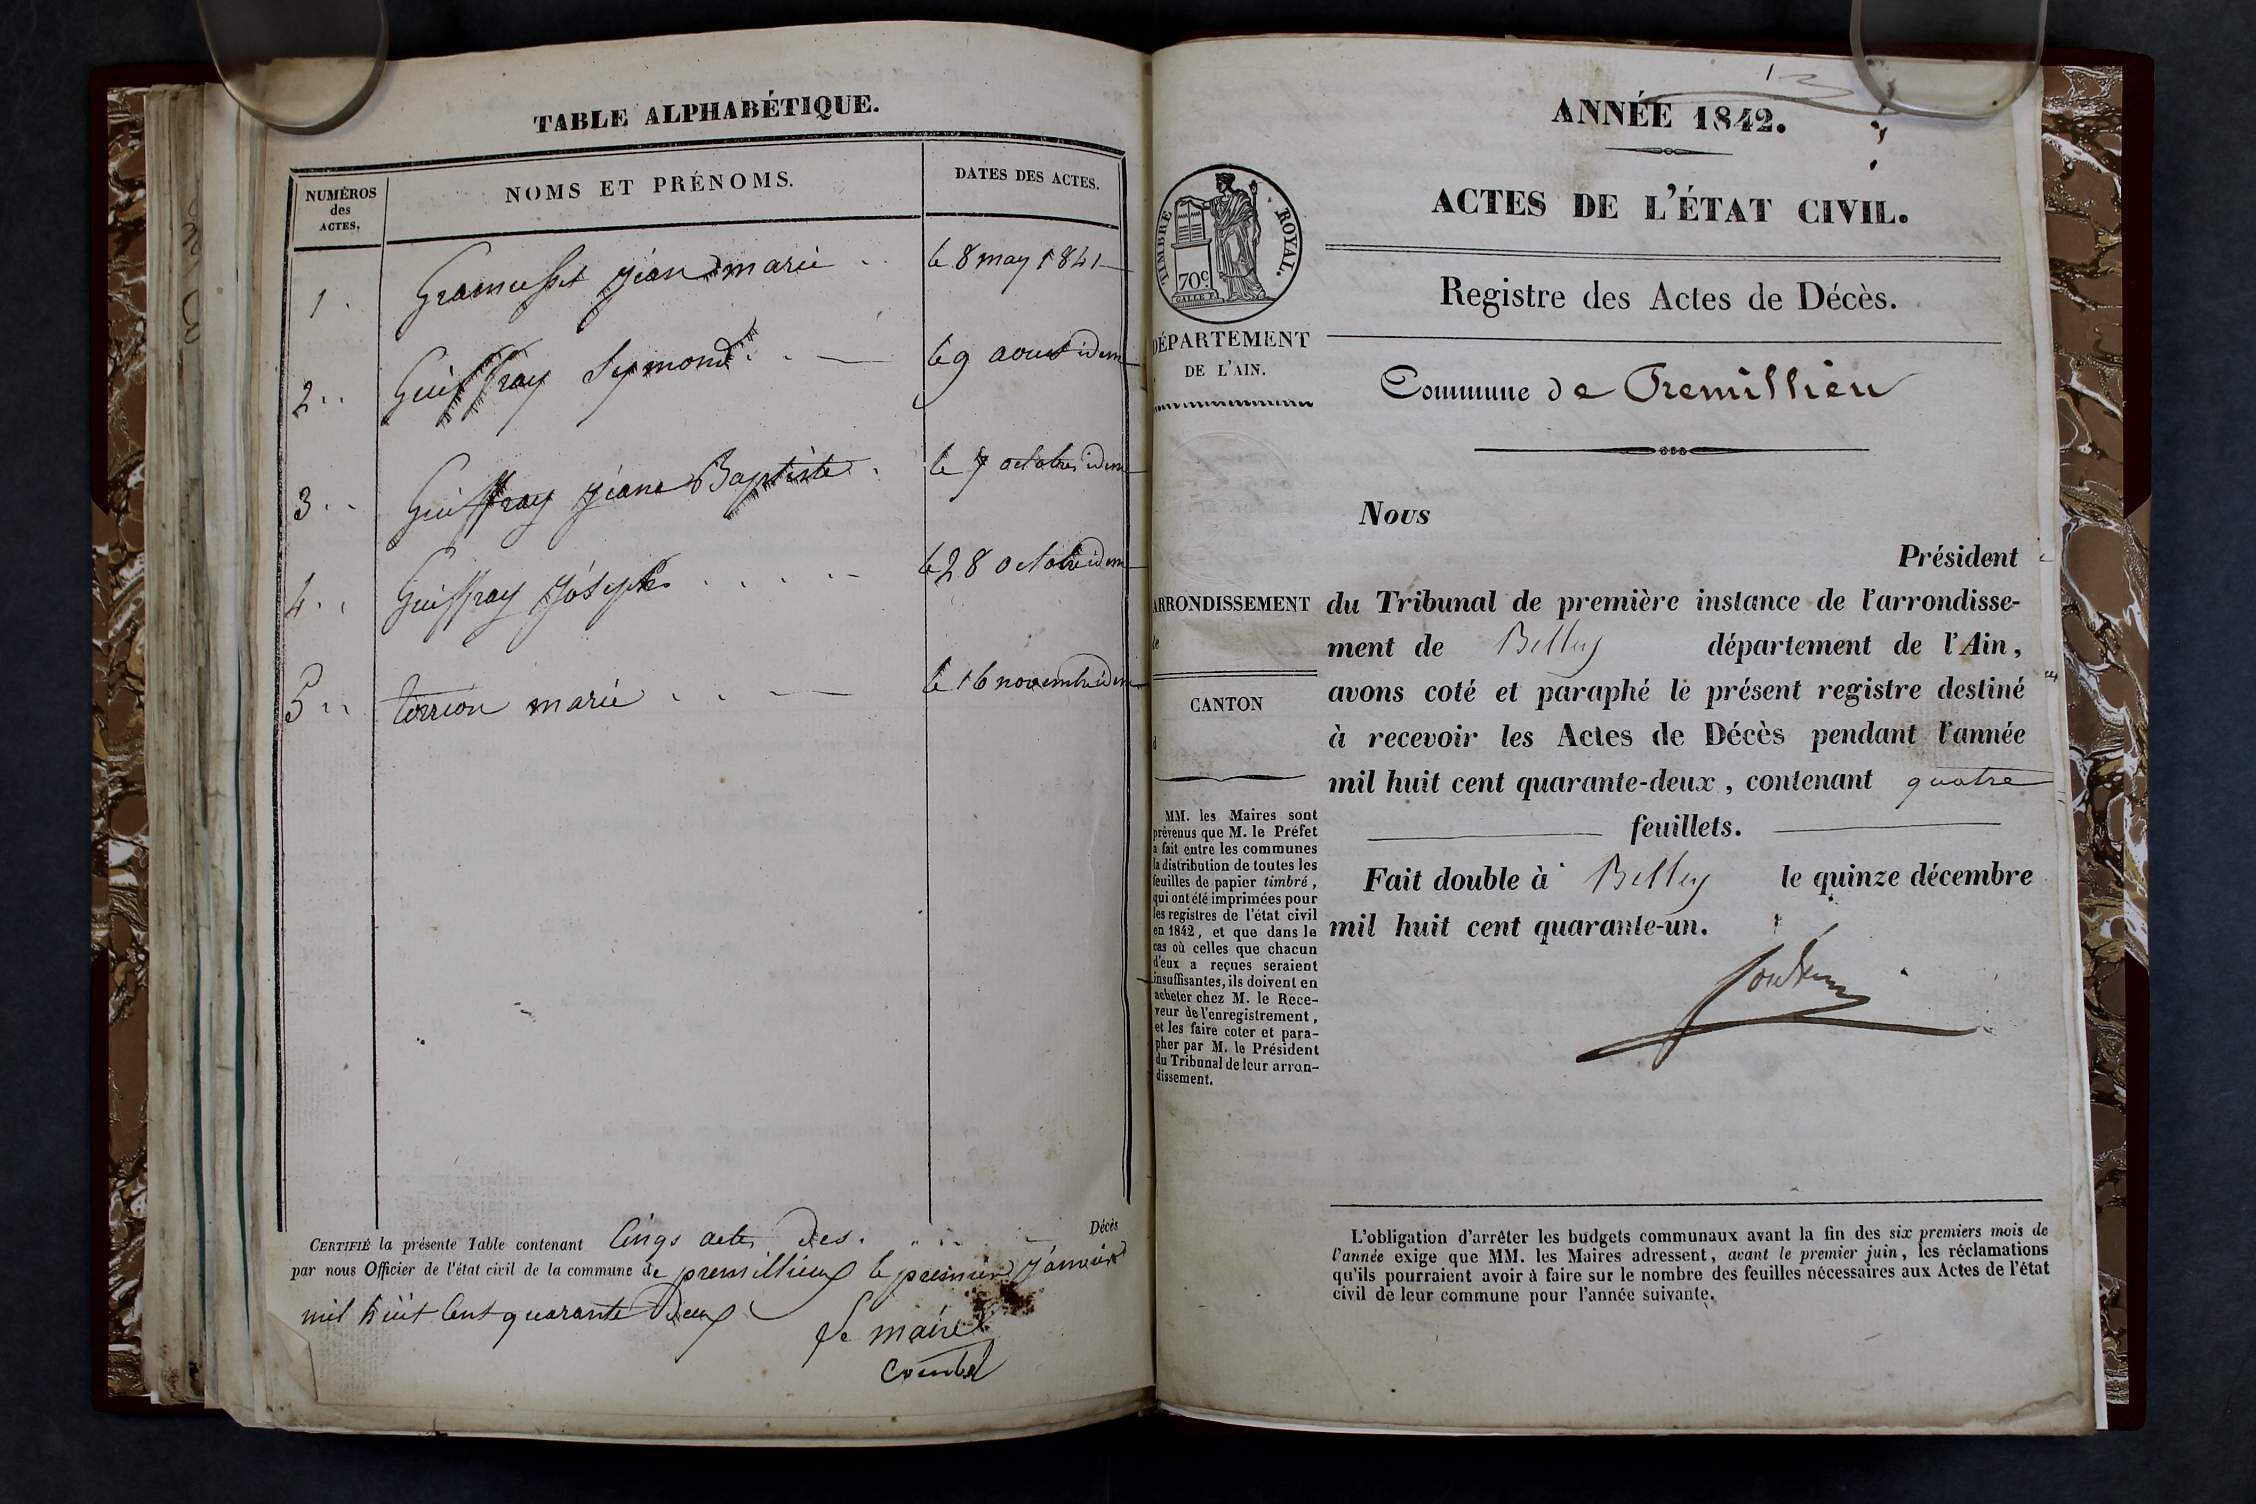 TABLE ALPHABÉTIQUE.
NUMÉROS des ACTES.
NOMS ET PRÉNOMS.
DATES DES ACTES.
1 . Gramusset jean marie . . le 8 may 1841
2 . . Guiffray Symond . . le 9 aout idem
3 . . Guiffray jéan Baptiste . le 7 octobre idem
4 . . Guiffray jóseph . . . . . le 28 octobre idem
5 . . torrion marie . . . le 16 novembre idem
CERTIFIÉ la présente Table contenant Cinqs actes des . Décès
par nous Officier de l'état civil de la commune de premillieux le premier janvier
mil huit Cent quarante Deux
Le maire
ANNÉE 1842.
ACTES DE L'ÉTAT CIVIL.
Registre des Actes de Décès.
Commune de Premillieu
TIMBRE ROYAL.
70c
DÉPARTEMENT
DE L'AIN.
ARRONDISSEMENT
CANTON
d
MM. les Maires sont
prévenus que M. le Préfet
a fait entre les communes
la distribution de toutes les
feuilles de papier timbré,
qui ont été imprimées pour
les registres de l'état civil
en 1842, et que dans le
cas où celles que chacun
d'eux a reçues seraient
insuffisantes, ils doivent en
acheter chez M. le Rece-
veur de l'enregistrement,
et les faire coter et para-
pher par M. le Président
du Tribunal de leur arron-
dissement.
Nous
Président
du Tribunal de première instance de l'arrondisse-
ment de Belley département de l'Ain,
avons coté et paraphé le présent registre destiné
à recevoir les Actes de Décès pendant l'année
mil huit cent quarante-deux, contenant quatre
feuillets.
Fait double à Belley le quinze décembre
mil huit cent quarante-un.
L'obligation d'arrêter les budgets communaux avant la fin des six premiers mois de
l'année exige que MM. les Maires adressent, avant le premier juin, les réclamations
qu'ils pourraient avoir à faire sur le nombre des feuilles nécessaires aux Actes de l'état
civil de leur commune pour l'année suivante.